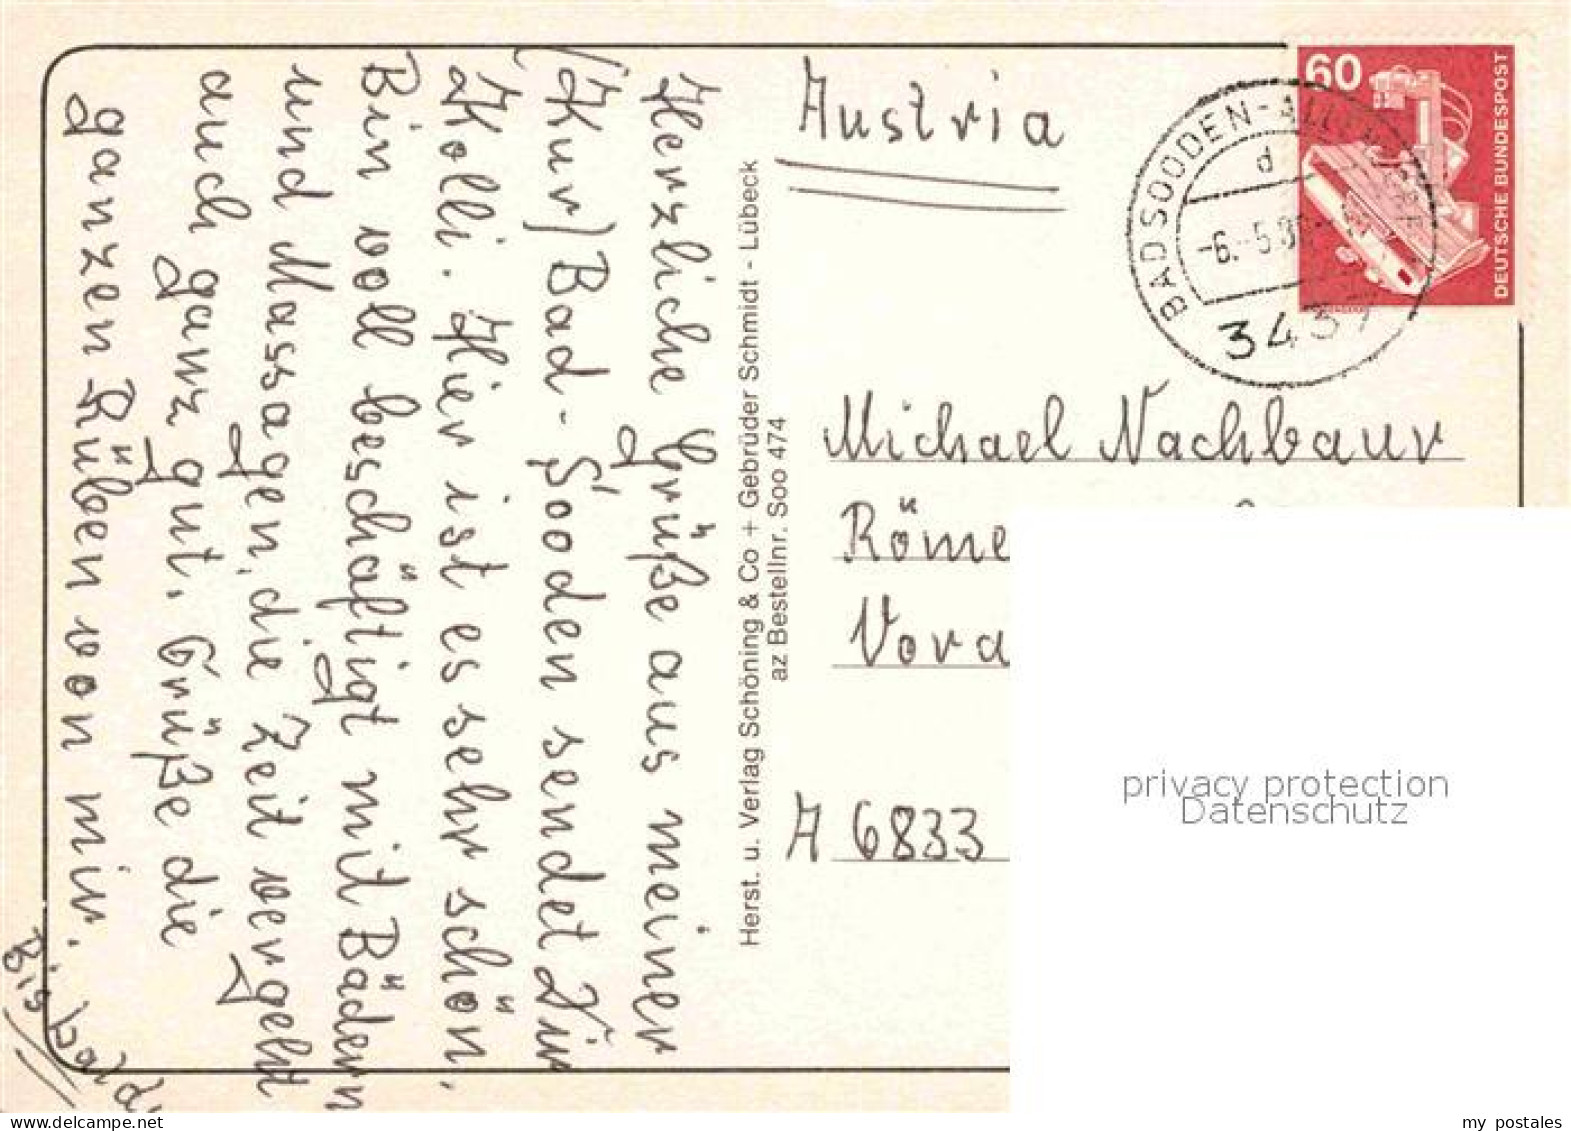 Herzliche Grüße aus meiner
(Kur) Bad-Sooden sendet Dir
Kolli. Hier ist es sehr schön,
Bin voll beschäftigt mit Bädern
und Massagen, die Zeit vergeht
auch ganz gut. Grüße die
ganzen Rüben von mir.
Bis
Herst. u. Verlag Schöning & Co + Gebrüder Schmidt - Lübeck
az Bestellnr. Soo 474
Austria
60
DEUTSCHE BUNDESPOST
BAD SOODEN-ALLENDORF
d
-6.-5.80
3437
Michael Nachbaur
Röme
Vora
A 6833
privacy protection
Datenschutz
my postales